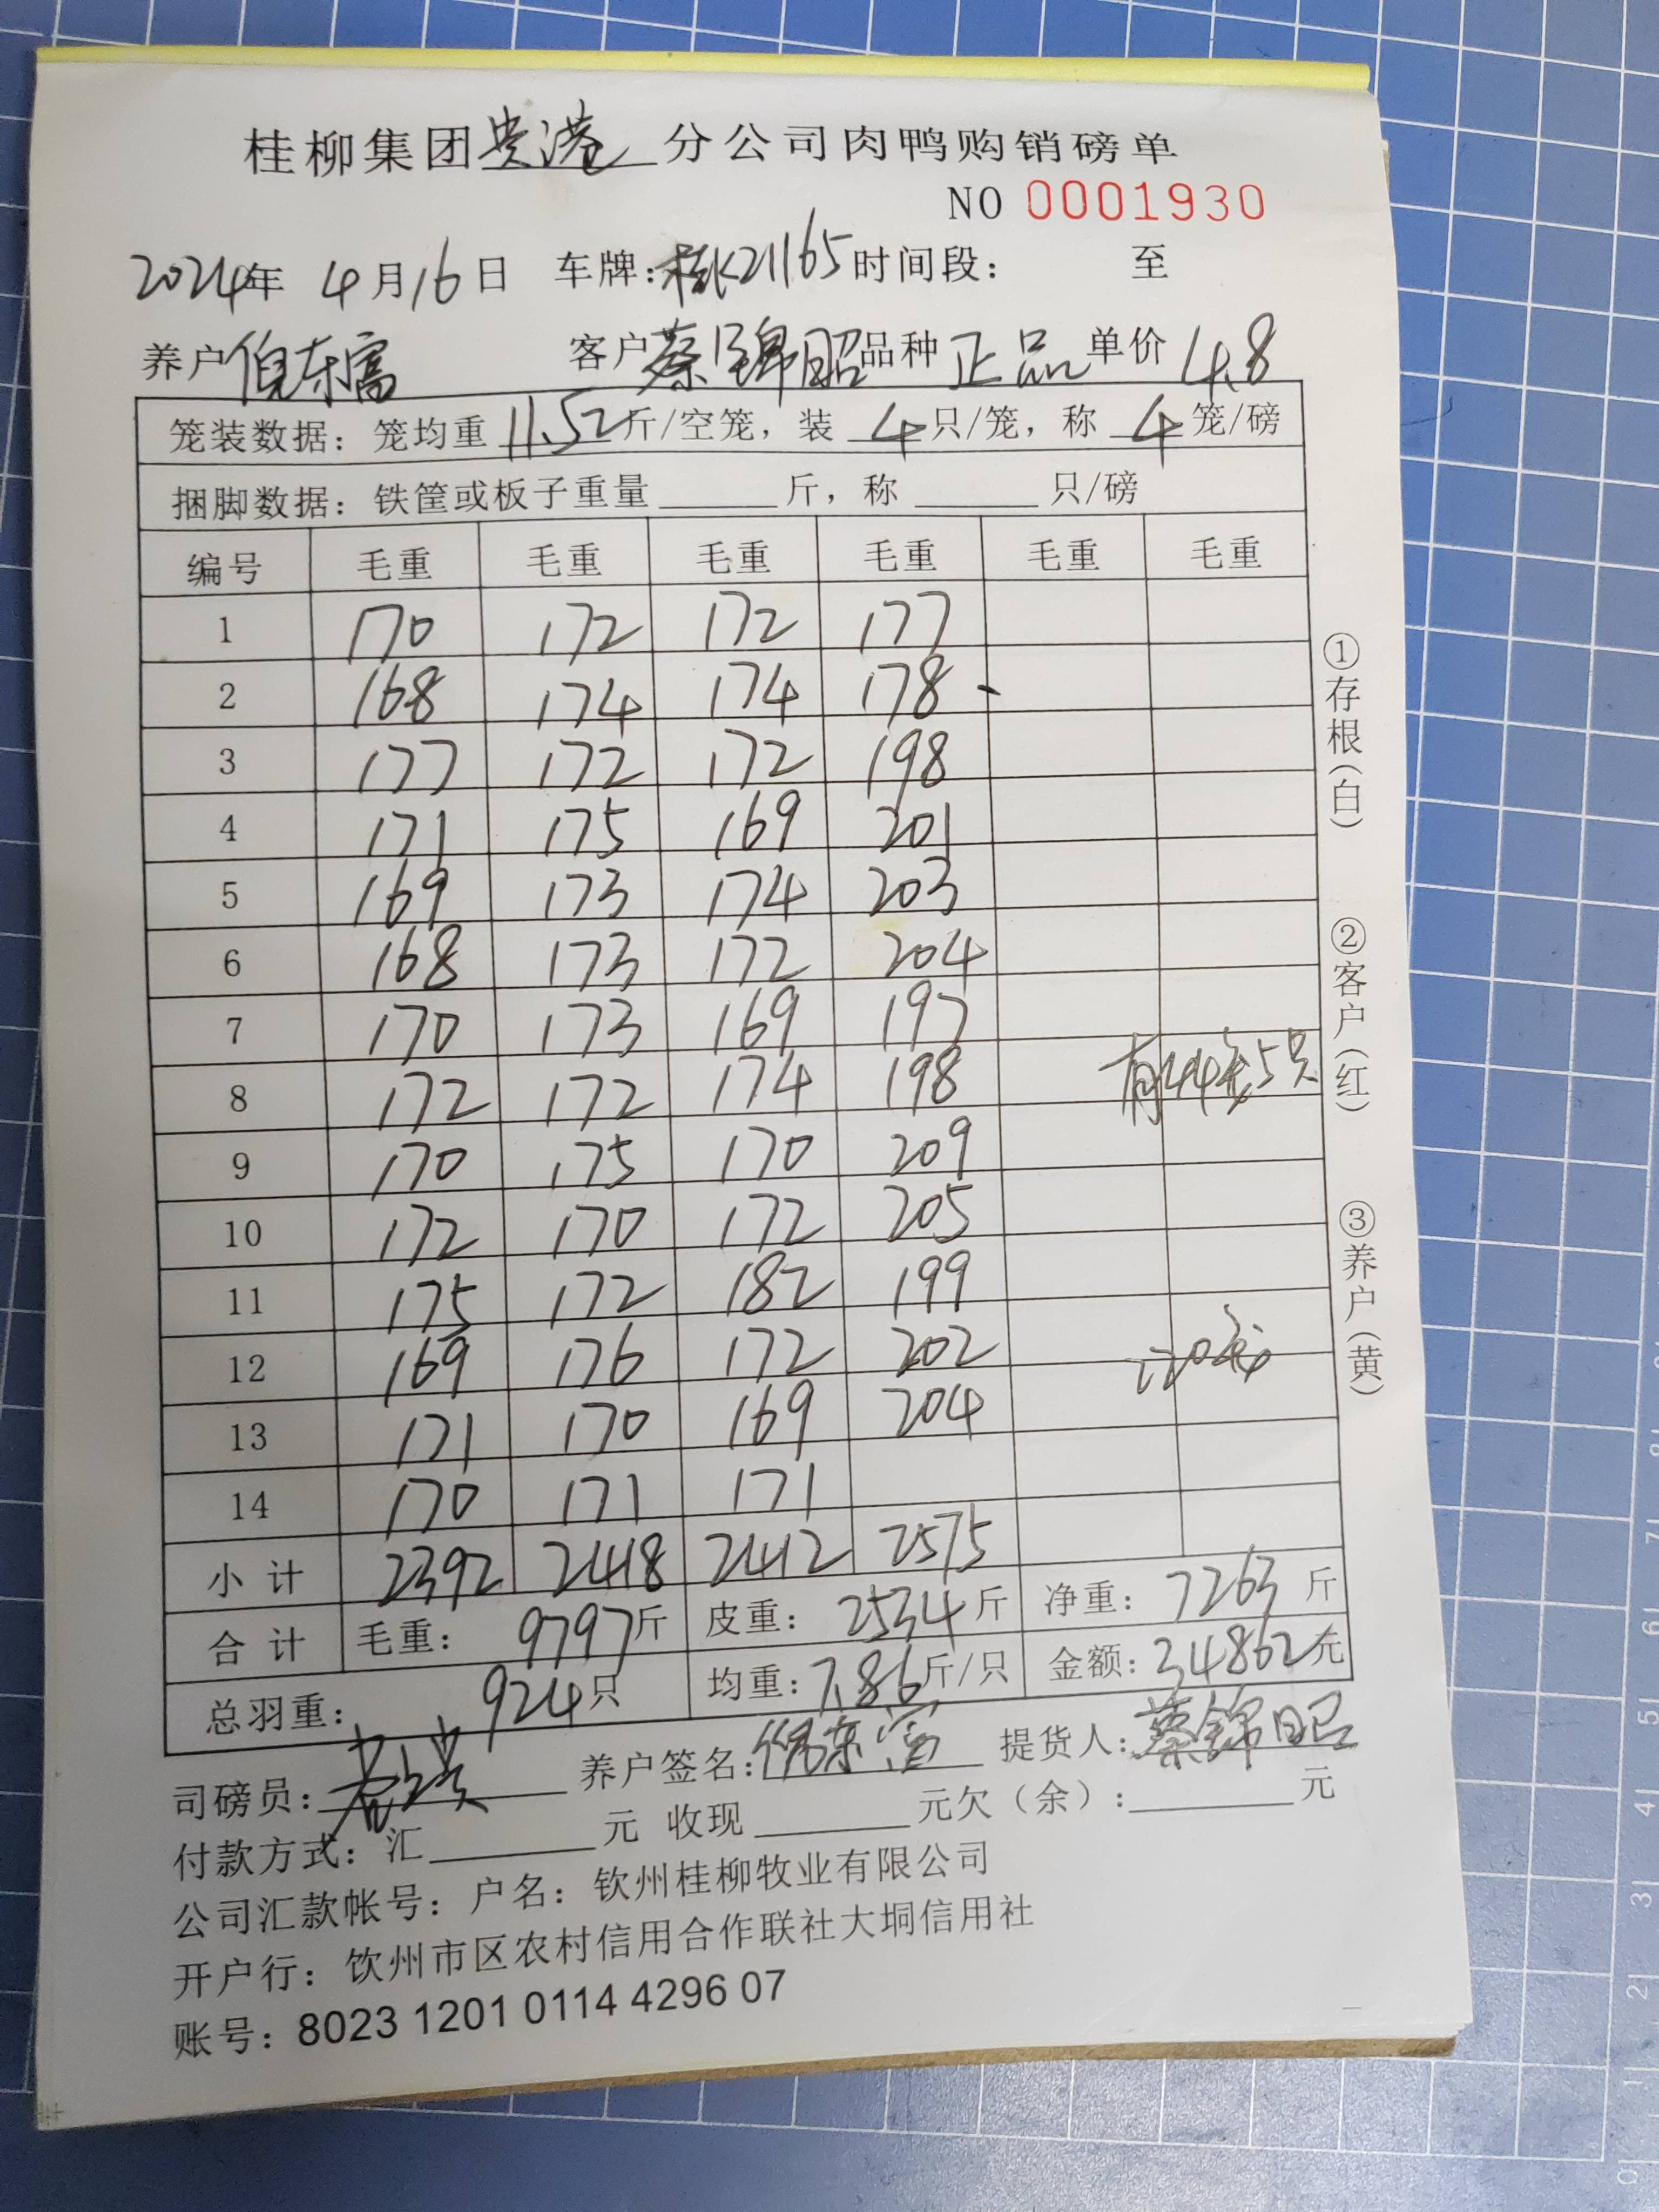 桂柳集团贵港分公司肉鸭购销磅单
NO 0001930
2024年 4月16日 车牌:桂K21165时间段: 至
养户倪东富 客户蔡锦昭品种正品单价4.8
笼装数据:笼均重11.52斤/空笼,装4只/笼,称4笼/磅
捆脚数据:铁筐或板子重量 斤,称 只/磅
编号 毛重 毛重 毛重 毛重 毛重 毛重
1 170 172 172 177
2 168 174 174 178
3 177 172 172 198
4 171 175 169 201
5 169 173 174 203
6 168 173 172 204
7 170 173 169 197
8 172 172 174 198 有44笼5只
9 170 175 170 209
10 172 170 172 205
11 175 172 182 199
12 169 176 172 202 220笼
13 171 170 169 204
14 170 171 171
小计 2392 2418 2412 2575
合计 毛重:9797斤 皮重:2534斤 净重:7263斤
总羽重:924只 均重:7.86斤/只 金额:34862元
司磅员: 养户签名:倪东富 提货人:蔡锦昭
付款方式:汇 元 收现 元欠(余): 元
公司汇款帐号:户名:钦州桂柳牧业有限公司
开户行:钦州市区农村信用合作联社大垌信用社
账号:8023 1201 0114 4296 07
①存根(白) ②客户(红) ③养户(黄)
0 1 2 3 4 5 6 7 8